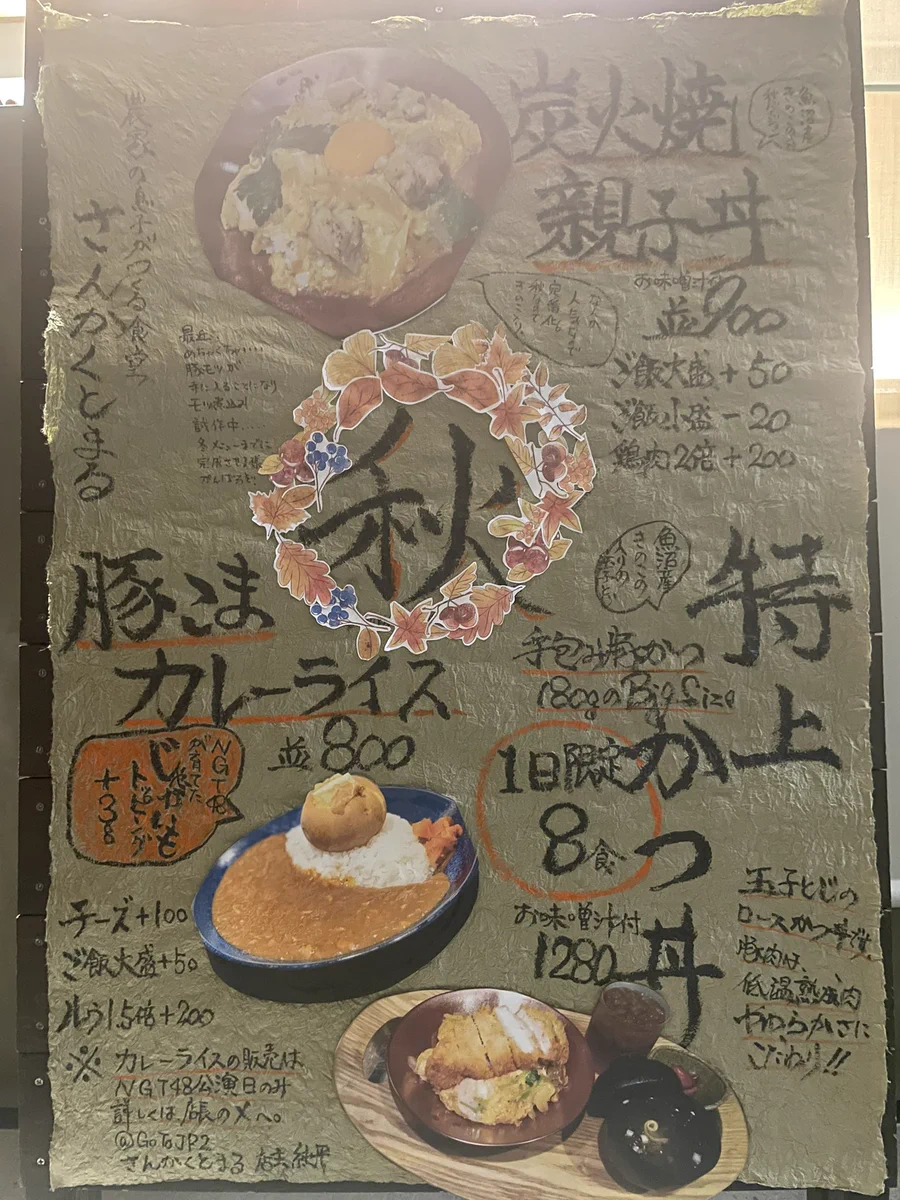 炭火焼
親子丼
魚沼産
きのこの
お味噌汁付
並900
ご飯大盛+50
ご飯小盛-20
鶏肉2倍+200
人気
定番化。
秋まで
農家の息子がつくる食堂
さんかくとまる
最近、
めちゃくちゃ‥‥
豚モツが
手に入ることになり
モツ煮込み
試作中‥‥
冬メニューまでに
完成させます様
がんばろっと
秋
豚こま
カレーライス
並800
NGT48
が育てた
じゃがいも
トッピングが
+38
チーズ+100
ご飯大盛+50
ルウ1.5倍+200
※カレーライスの販売は
NGT48公演日のみ
詳しくは店長のXへ。
@GoToJP2
さんかくとまる
特上
かつ丼
魚沼産
きのこの
入りの
玉子とじ
手包み豚かつ
180gのBig Size
1日限定
8食
お味噌汁付
1280
玉子とじの
ロースかつ丼
豚肉は、
低温熟成肉
やわらかさに
こだわり!!